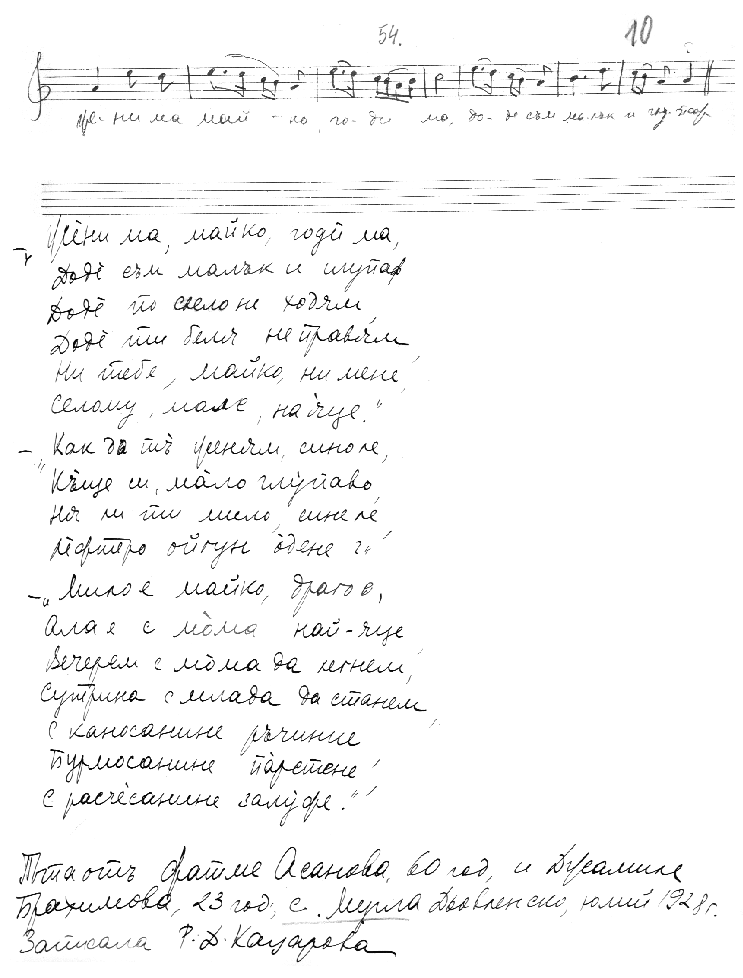 54.
10
жени ма май - ко, го - ди ма, до - де съм ма - лък и
Жени ма, майко, годи ма,
Доде съм малък и глупав
Доде по село не ходям,
Доде ти беля не правям,
Ни тебе, майко, ни мене,
Селому, мале, найяце."
– Как да тъ женям, синоле,
"Къще си, мало глупаво,
Не ли ти мило, синле
ойгун одене?"
– „Мило е майко, драго е,
Ала е с мома най-яце
Вечерем с мома да легнем,
Сутрина с млада да станем,
С каносанине ръчинне
Бурмосанине парстене,
С расчесанине залуфе."
Пята отъ Фатме Асанова, 60 год, и
Брахимова, 23 год, с. Мугла Дьовленско, юлий 1928 г.
Записала Р. Д. Кацарова